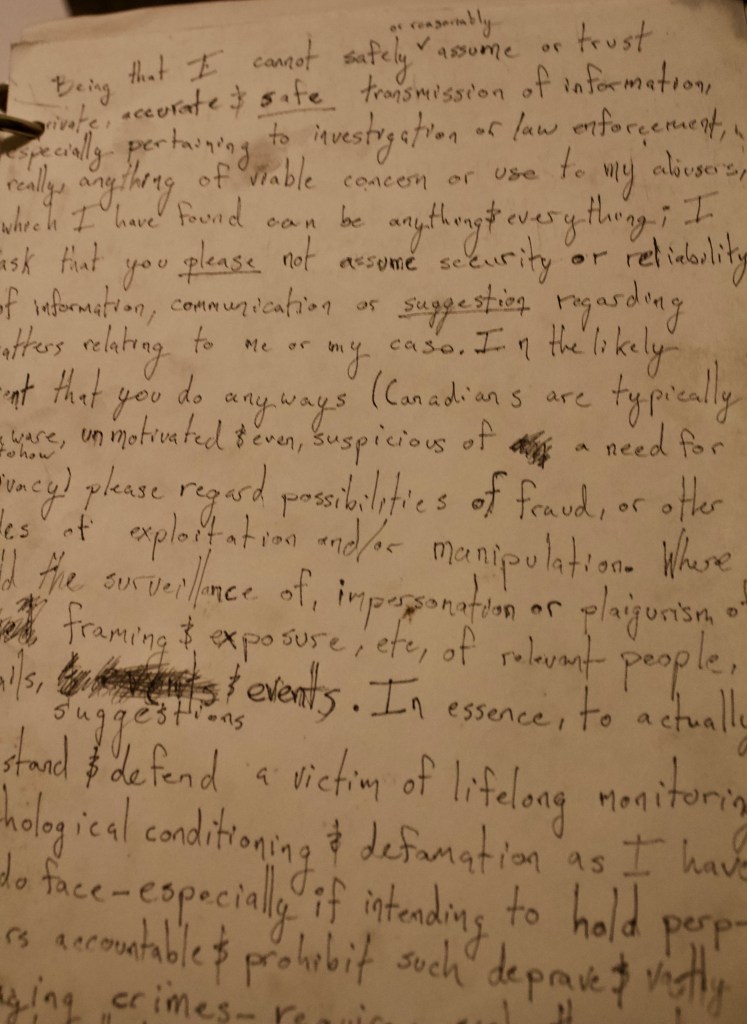 or reasonably
Being that I cannot safely ✓ assume or trust
rivate, accurate & safe transmission of information,
especially pertaining to investigation or law enforcement,
really, anything of viable concern or use to my abusers,
which I have found can be anything & everything; I
ask that you please not assume security or reliability
of information, communication or suggestion regarding
atters relating to me or my case. In the likely
ent that you do anyways (Canadians are typically
ware, unmotivated & even, suspicious of a need for
to how
ivacy) please regard possibilities of fraud, or other
es of exploitation and/or manipulation. Where
d the surveillance of, impersonation or plaigurism o
framing & exposure, etc, of relevant people,
ils, & events. In essence, to actually
suggestions
stand & defend a victim of lifelong monitorin
hological conditioning & defamation as I have
do face - especially if intending to hold perp-
rs accountable & prohibit such deprave & vastly
aging crimes -